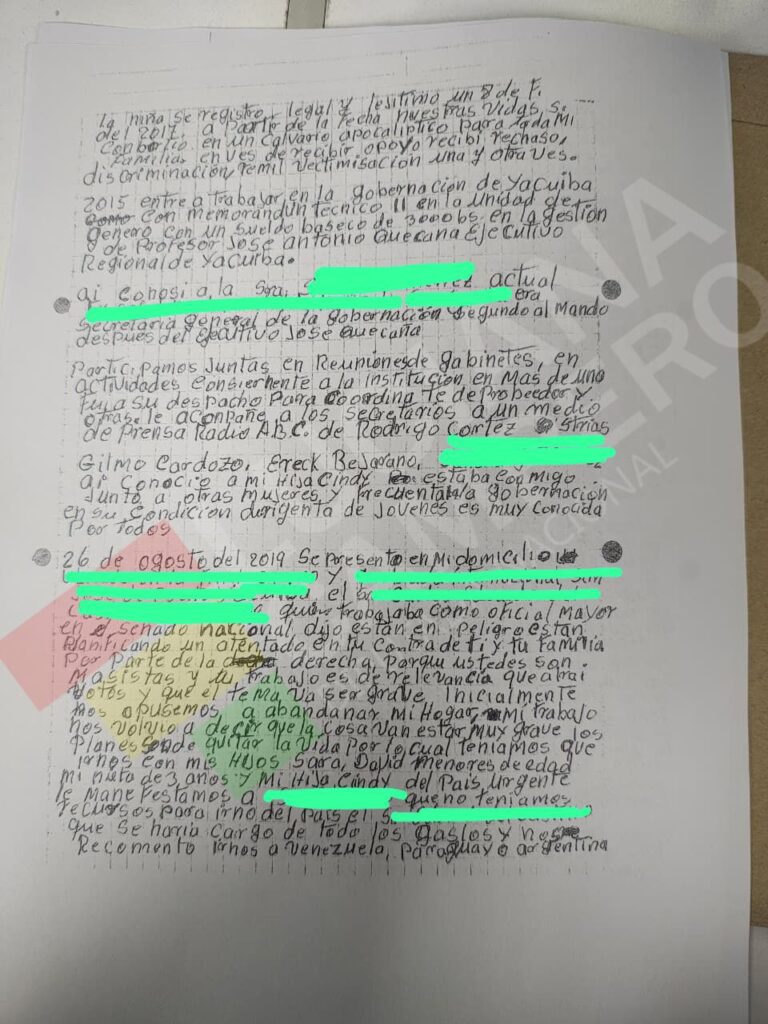 La niña se registro legal y lesitimo un 8 de F.
del 2017. a parte de la fecha nuestras vidas se
Convirtio en un Calvario apocaliptico para cada Mi
Familia en ves de recibir apoyo recibi rechaso,
discriminacion remil victimisacion una y otra ves.
2015 entre a trabajar en la gobernación de Yacuiba
con memorandun tecnico II en la Unidad de
genero con un sueldo baseco de 3000bs. en la gestión
de Profesor Jose antonio Quecana Ejecutivo
Regional de Yacuiba.
ai conosi a la Sra. actual
era
Secretaria general de la gobernación segundo al Mando
despues del Ejecutivo Jose Quecana
Participamos Juntas en Reuniones de gabinetes, en
actividades consiernente a la institucion en Mas de una
fui a su despacho Para Coordina te de Probeedor y.
otras. le aconpañe a los Secretarios a un medio
de Prensa Radio A.B.C. de Rodrigo Cortez
Gilmo Cardozo, Ereck Bejarano,
ai conocio a mi Hija Cindy estaba conmigo
Junto a otras mujeres y frecuentaba la gobernación
en su condición dirigenta de Jovenes es muy conocida
Por todos
26 de agosto del 2019 Se presento en Mi domicilio
y
el
quien trabajaba como oficial mayor
en el senado nacional, dijo están en Peligro estan
Planificando un atentado en tu contra de ti y tu familia
Por Parte de la derecha, Porque ustedes son.
Masistas y tu trabajo es de relevancia que atrai
votos y que el tema va ser grave Inicialmente
nos opusemos a abandanar Mi Hogar, mi trabajo
nos volvio a decir que la cosa van estar muy grave los
Planes son de quitar la Vida Por lo cual teniamos que
irnos con mis Hijos Sara, David menores de edad
mi nieto de 3 años y Mi Hija Cindy del País urgente
le Manefestamos a que no teniamos
recursos para irno del Pais el
que se haria cargo de todo los gastos y nos
Recomento irnos a Venezuela, Paraguay o argentina